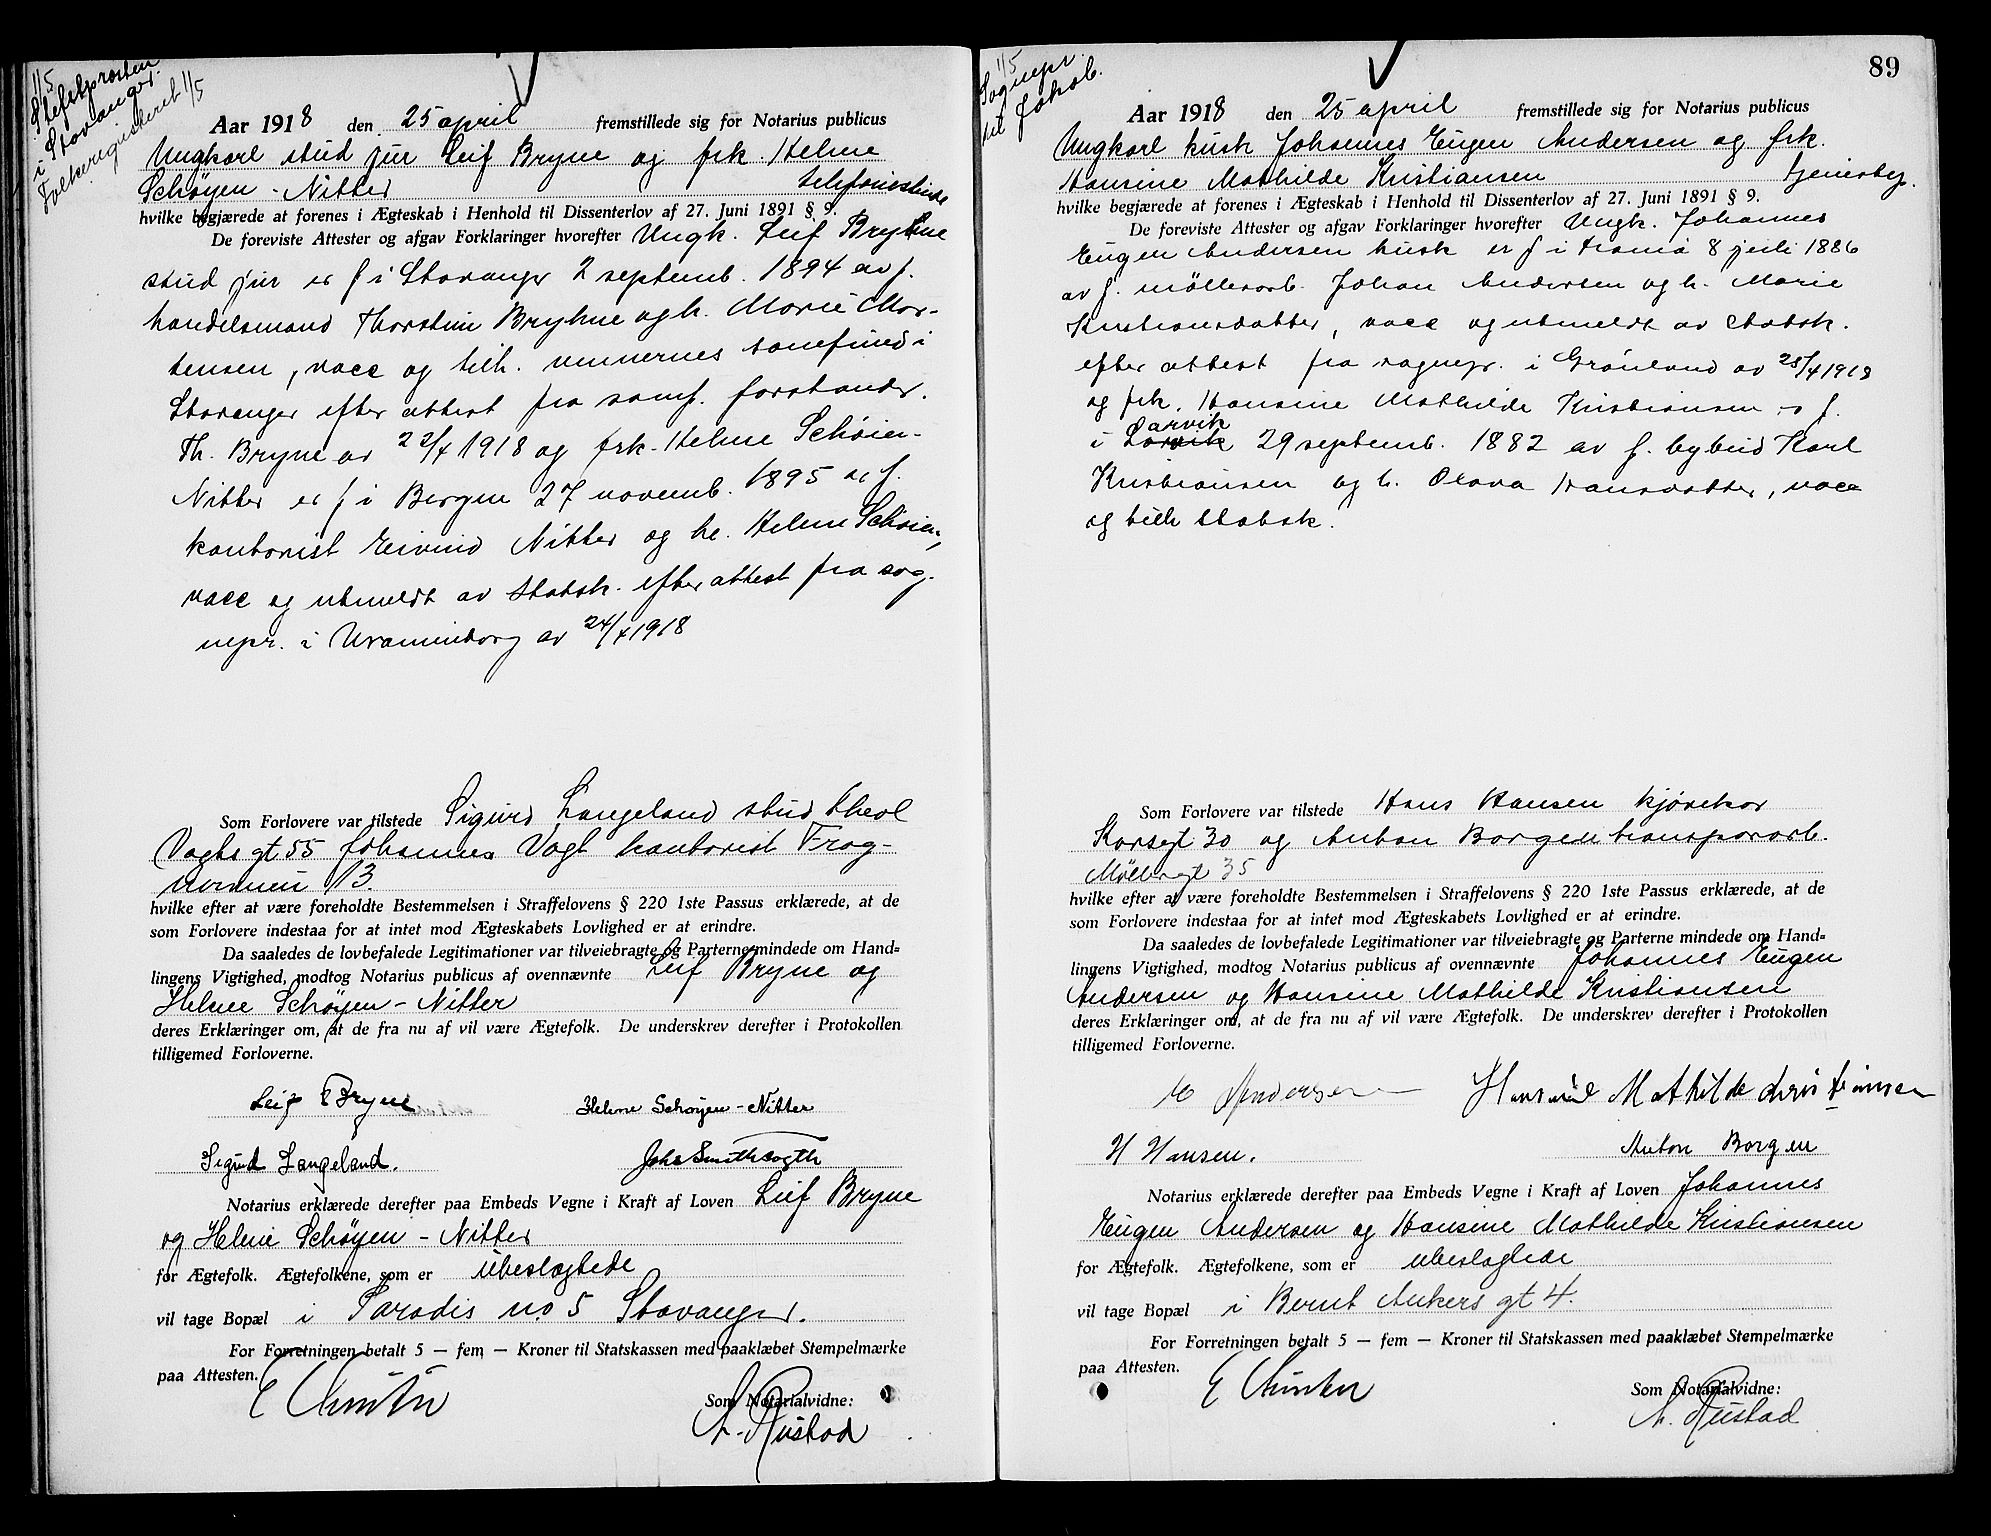 1/5
Stiftsprosten
i Stavanger.
Folkeregisteret 1/5
Aar 1918 den 25 april fremstillede sig for Notarius publicus
Ungkarl stud jur Leif Bryne og frk. Helene
Schøyen-Nitter telefonistinde
hvilke begjærede at forenes i Ægteskab i Henhold til Dissenterlov af 27. Juni 1891 § 9.
De foreviste Attester og afgav Forklaringer hvorefter Ungk. Leif Bryhne
stud jur er f i Stavanger 2 septemb. 1894 av f.
handelsmand Thorstein Bryhne og h. Marie Mor-
tensen, vacc og tilh. vennernes samfund i
Stavanger efter attest fra samf. forstander.
Th. Bryne av 22/4 1918 og frk. Helene Schøien-
Nitter er f i Bergen 27 novemb. 1895 av f.
kontorist Eivind Nitter og h. Helene Schøien,
vacc og utmeldt av statsk. efter attest fra sog-
nepr. i Uranienborg av 24/4 1918
Som Forlovere var tilstede Sigurd Langeland stud theol
Vogts gt 55 Johannes Vogt kontorist Frog-
nerveien 13.
hvilke efter at være foreholdte Bestemmelsen i Straffelovens § 220 1ste Passus erklærede, at de
som Forlovere indestaa for at intet mod Ægteskabets Lovlighed er at erindre.
Da saaledes de lovbefalede Legitimationer var tilveiebragte og Parterne mindede om Hand-
lingens Vigtighed, modtog Notarius publicus af ovennævnte Leif Bryne og
Helene Schøyen-Nitter
deres Erklæringer om, at de fra nu af vil være Ægtefolk. De underskrev derefter i Protokollen
tilligemed Forloverne.
Leif Bryne Helene Schøyen-Nitter
Sigurd Langeland. Johs Smith Vogth
Notarius erklærede derefter paa Embeds Vegne i Kraft af Loven Leif Bryne
og Helene Schøyen-Nitter
for Ægtefolk. Ægtefolkene, som er ubeslægtede
vil tage Bopæl i Paradis no. 5 Stavanger.
For Forretningen betalt 5 — fem — Kroner til Statskassen med paaklæbet Stempelmærke
paa Attesten.
Som Notarialvidne:
A. Rustad
89
1/5
Sognepr.
til Jakob.
Aar 1918 den 25 april fremstillede sig for Notarius publicus
Ungkarl kusk Johannes Eugen Andersen og frk.
Hansine Mathilde Kristiansen tjenerbeg.
hvilke begjærede at forenes i Ægteskab i Henhold til Dissenterlov af 27. Juni 1891 § 9.
De foreviste Attester og afgav Forklaringer hvorefter Ungk. Johannes
Eugen Andersen kusk er f i Kra­nia 8 juli 1886
av f. møllerarb. Johan Andersen og h. Marie
Kristiansdatter, vacc og utmeldt av statsk.
efter attest fra sognepr. i Grønland av 25/4 1918
og frk. Hansine Mathilde Kristiansen er f.
i Larvik 29 septemb. 1882 av f. bybud Karl
Kristiansen og h. Olava Hansdatter, vacc
og tilh statsk.
Som Forlovere var tilstede Hans Hansen kjørekar
Korsgt 30 og Anton Borgen transportarb.
Møllergt 35
hvilke efter at være foreholdte Bestemmelsen i Straffelovens § 220 1ste Passus erklærede, at de
som Forlovere indestaa for at intet mod Ægteskabets Lovlighed er at erindre.
Da saaledes de lovbefalede Legitimationer var tilveiebragte og Parterne mindede om Hand-
lingens Vigtighed, modtog Notarius publicus af ovennævnte Johannes Eugen
Andersen og Hansine Mathilde Kristiansen
deres Erklæringer om, at de fra nu af vil være Ægtefolk. De underskrev derefter i Protokollen
tilligemed Forloverne.
E Andersen Hansine Mathilde Kristiansen
H Hansen. Anton Borgen
Notarius erklærede derefter paa Embeds Vegne i Kraft af Loven Johannes
Eugen Andersen og Hansine Mathilde Kristiansen
for Ægtefolk. Ægtefolkene, som er ubeslægtede
vil tage Bopæl i Bernt Ankers gt 4.
For Forretningen betalt 5 — fem — Kroner til Statskassen med paaklæbet Stempelmærke
paa Attesten.
Som Notarialvidne:
A. Rustad